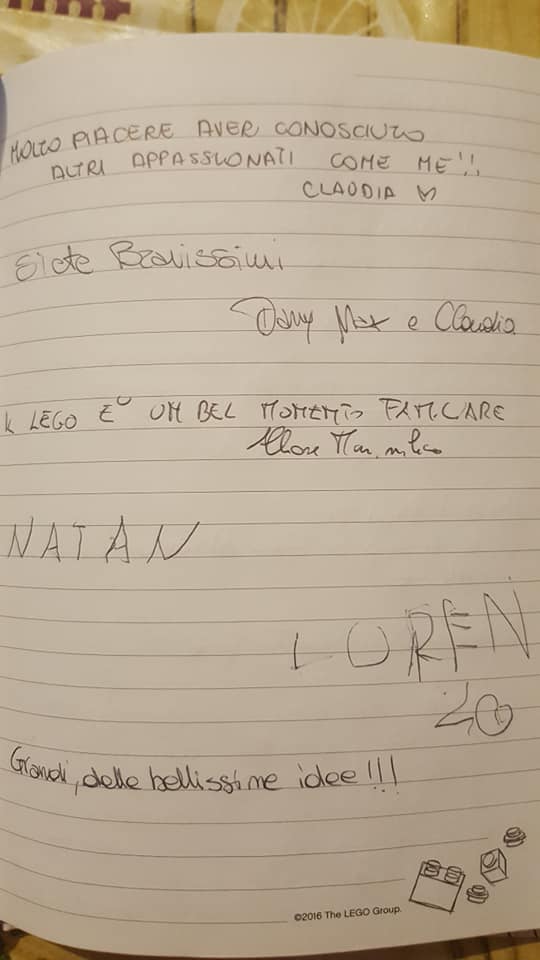 MOLTO PIACERE AVER CONOSCIUTO
ALTRI APPASSIONATI COME ME!!
CLAUDIA
Siete Bravissimi
Dany Max e Claudia
LEGO E' UN BEL MOMENTO FAMILIARE
NATAN
LOREN
ZO
Grandi, delle bellissime idee!!!
©2016 The LEGO Group.